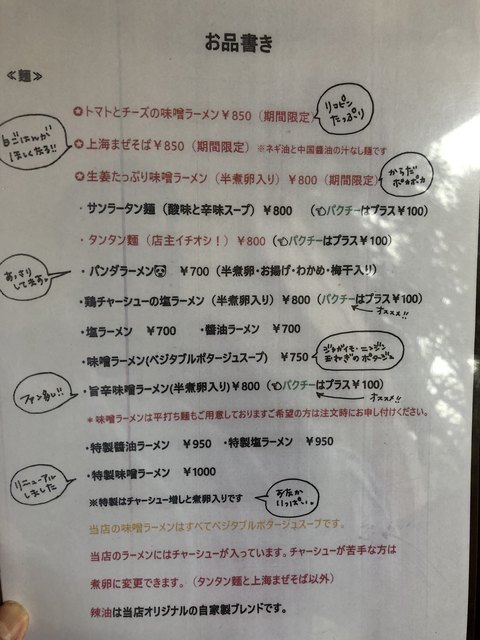 お品書き
≪麺≫
✪トマトとチーズの味噌ラーメン¥850（期間限定）
リコピンたっぷり
白ごはんがほしくなる!!
✪上海まぜそば¥850（期間限定）※ネギ油と中国醤油の汁なし麺です
✪生姜たっぷり味噌ラーメン（半煮卵入り）¥800（期間限定）
からだポカポカ
・サンラータン麺（酸味と辛味スープ）¥800（👈パクチーはプラス（¥100）
・タンタン麺（店主イチオシ！）¥800（👈パクチーはプラス（¥100）
あっさりしてます。
・パンダラーメン🐼 ¥700（半煮卵・お揚げ・わかめ・梅干入り）
・鶏チャーシューの塩ラーメン（半煮卵入り）¥800（パクチーはプラス¥100）
オススメ!!
・塩ラーメン ¥700 ・醤油ラーメン ¥700
・味噌ラーメン(ベジタブルポタージュスープ) ¥750
ジャガイモ・ニンジン玉ねぎのポタージュ
ファン多し!!
・旨辛味噌ラーメン(半煮卵入り)¥800（👈パクチーはプラス¥100）
オススメ!!
＊味噌ラーメンは平打ち麺もご用意しておりますご希望の方は注文時にお申し付けください。
・特製醤油ラーメン ¥950 ・特製塩ラーメン ¥950
リニューアルしました
・特製味噌ラーメン ¥1000
※特製はチャーシュー増しと煮卵入りです
おなかいっぱい。
当店の味噌ラーメンはすべてベジタブルポタージュスープです。
当店のラーメンにはチャーシューが入っています。チャーシューが苦手な方は
煮卵に変更できます。（タンタン麺と上海まぜそば以外）
辣油は当店オリジナルの自家製ブレンドです。